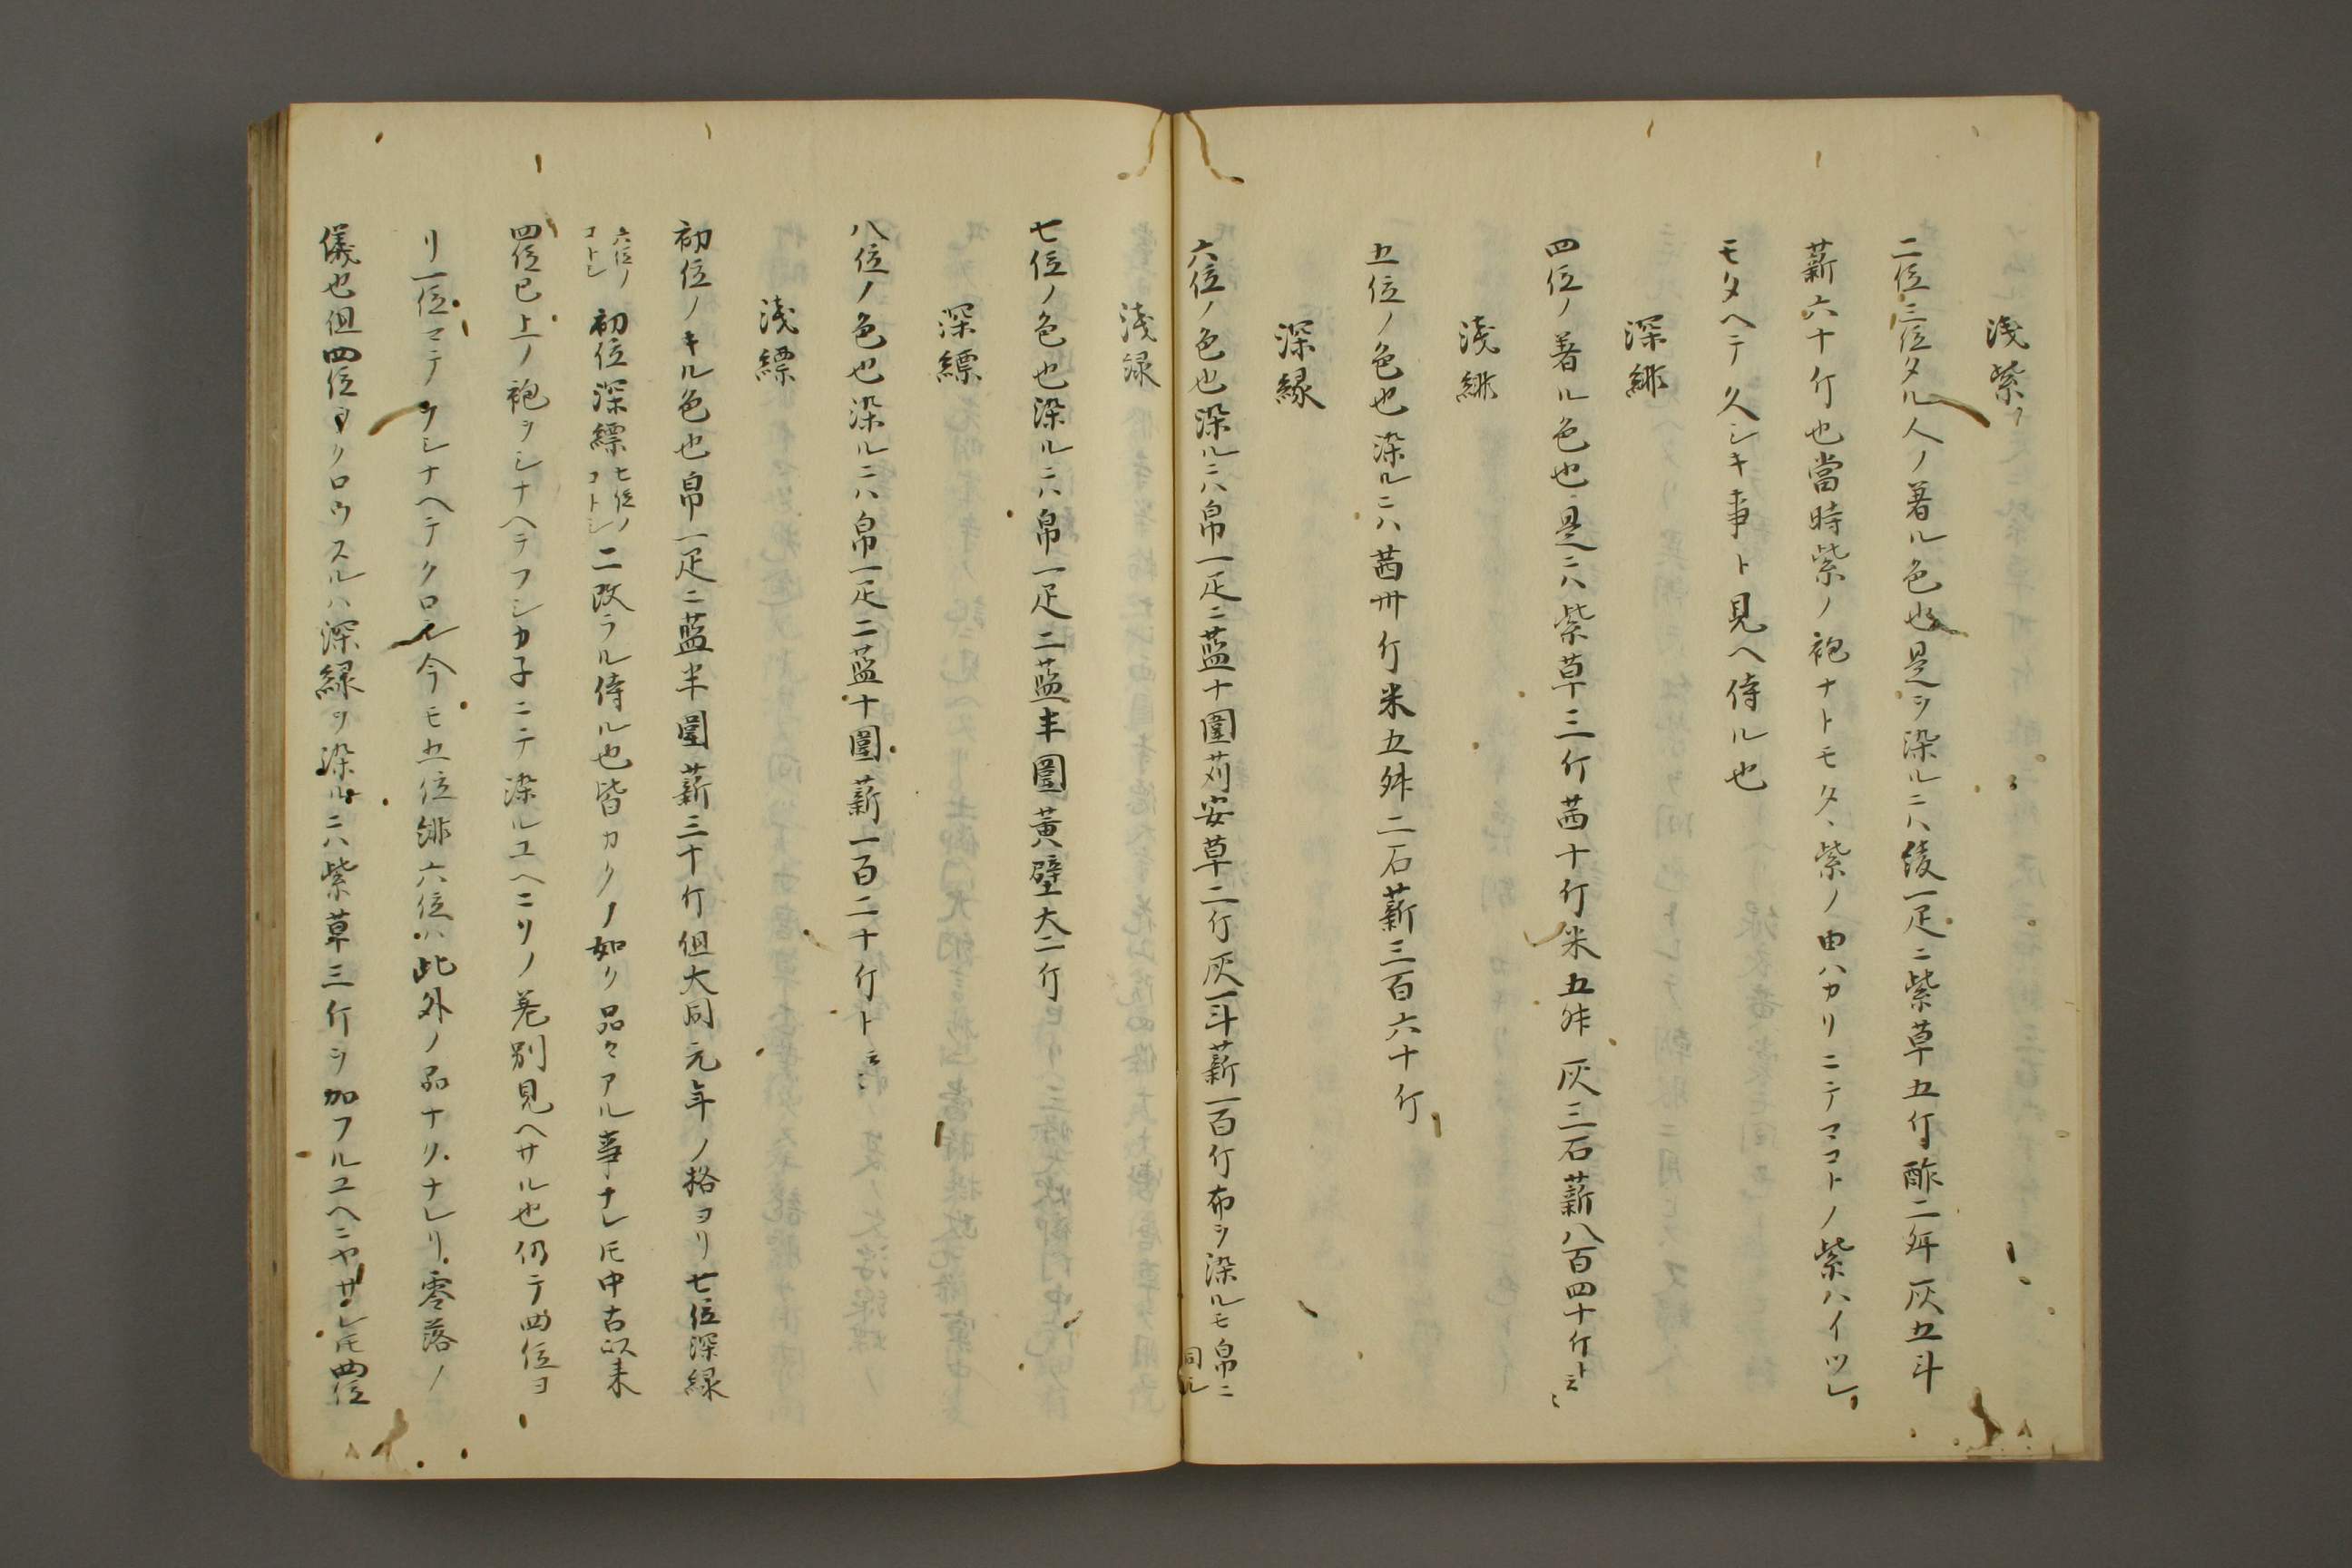 浅紫
二位三位タル人ノ著ル色也是ヲ染ルニハ綾一疋ニ紫草五斤酢二升灰五斗
薪六十斤也當時紫ノ袍ナトモタヽ紫ノ由ハカリニテマコトノ紫ハイツレ
モタヘテ久シキ事ト見ヘ侍ル也
深緋
四位ノ著ル色也是ニハ紫草三斤茜十斤米五舛灰三石薪八百四十斤ト云々
浅緋
五位ノ色也染ルニハ茜卅斤米五舛二石薪三百六十斤
深緑
六位ノ色也染ルニハ帛一疋ニ藍十圍苅安草二斤灰一斗薪一百斤布ヲ染ルモ帛ニ同シ
浅緑
七位ノ色也染ルニハ帛一疋ニ藍半圍黄壁大二斤
深縹
八位ノ色也染ルニハ帛一疋ニ藍十圍薪一百二十斤ト云々
浅縹
初位ノキル色也帛一疋ニ藍半圍薪三十斤但大同元年ノ格ヨリ七位深緑
六位ノコトシ初位深縹七位ノコトシニ改ラル侍ル也皆カクノ如ク品々アル事ナレ𪜈中古以来
四位已上ノ袍ヲシナヘテフシカ子ニテ染ルユヘニソノ差別見ヘサル也仍テ四位ヨ
リ一位マテヲシナヘテクロシ今モ五位緋六位ハ此外ノ品ナクナレリ零落ノ
儀也但四位ヨクロウスルハ深緑ヲ染ルニハ紫草三斤ヲ加フルユヘニヤサレ𪜈四位